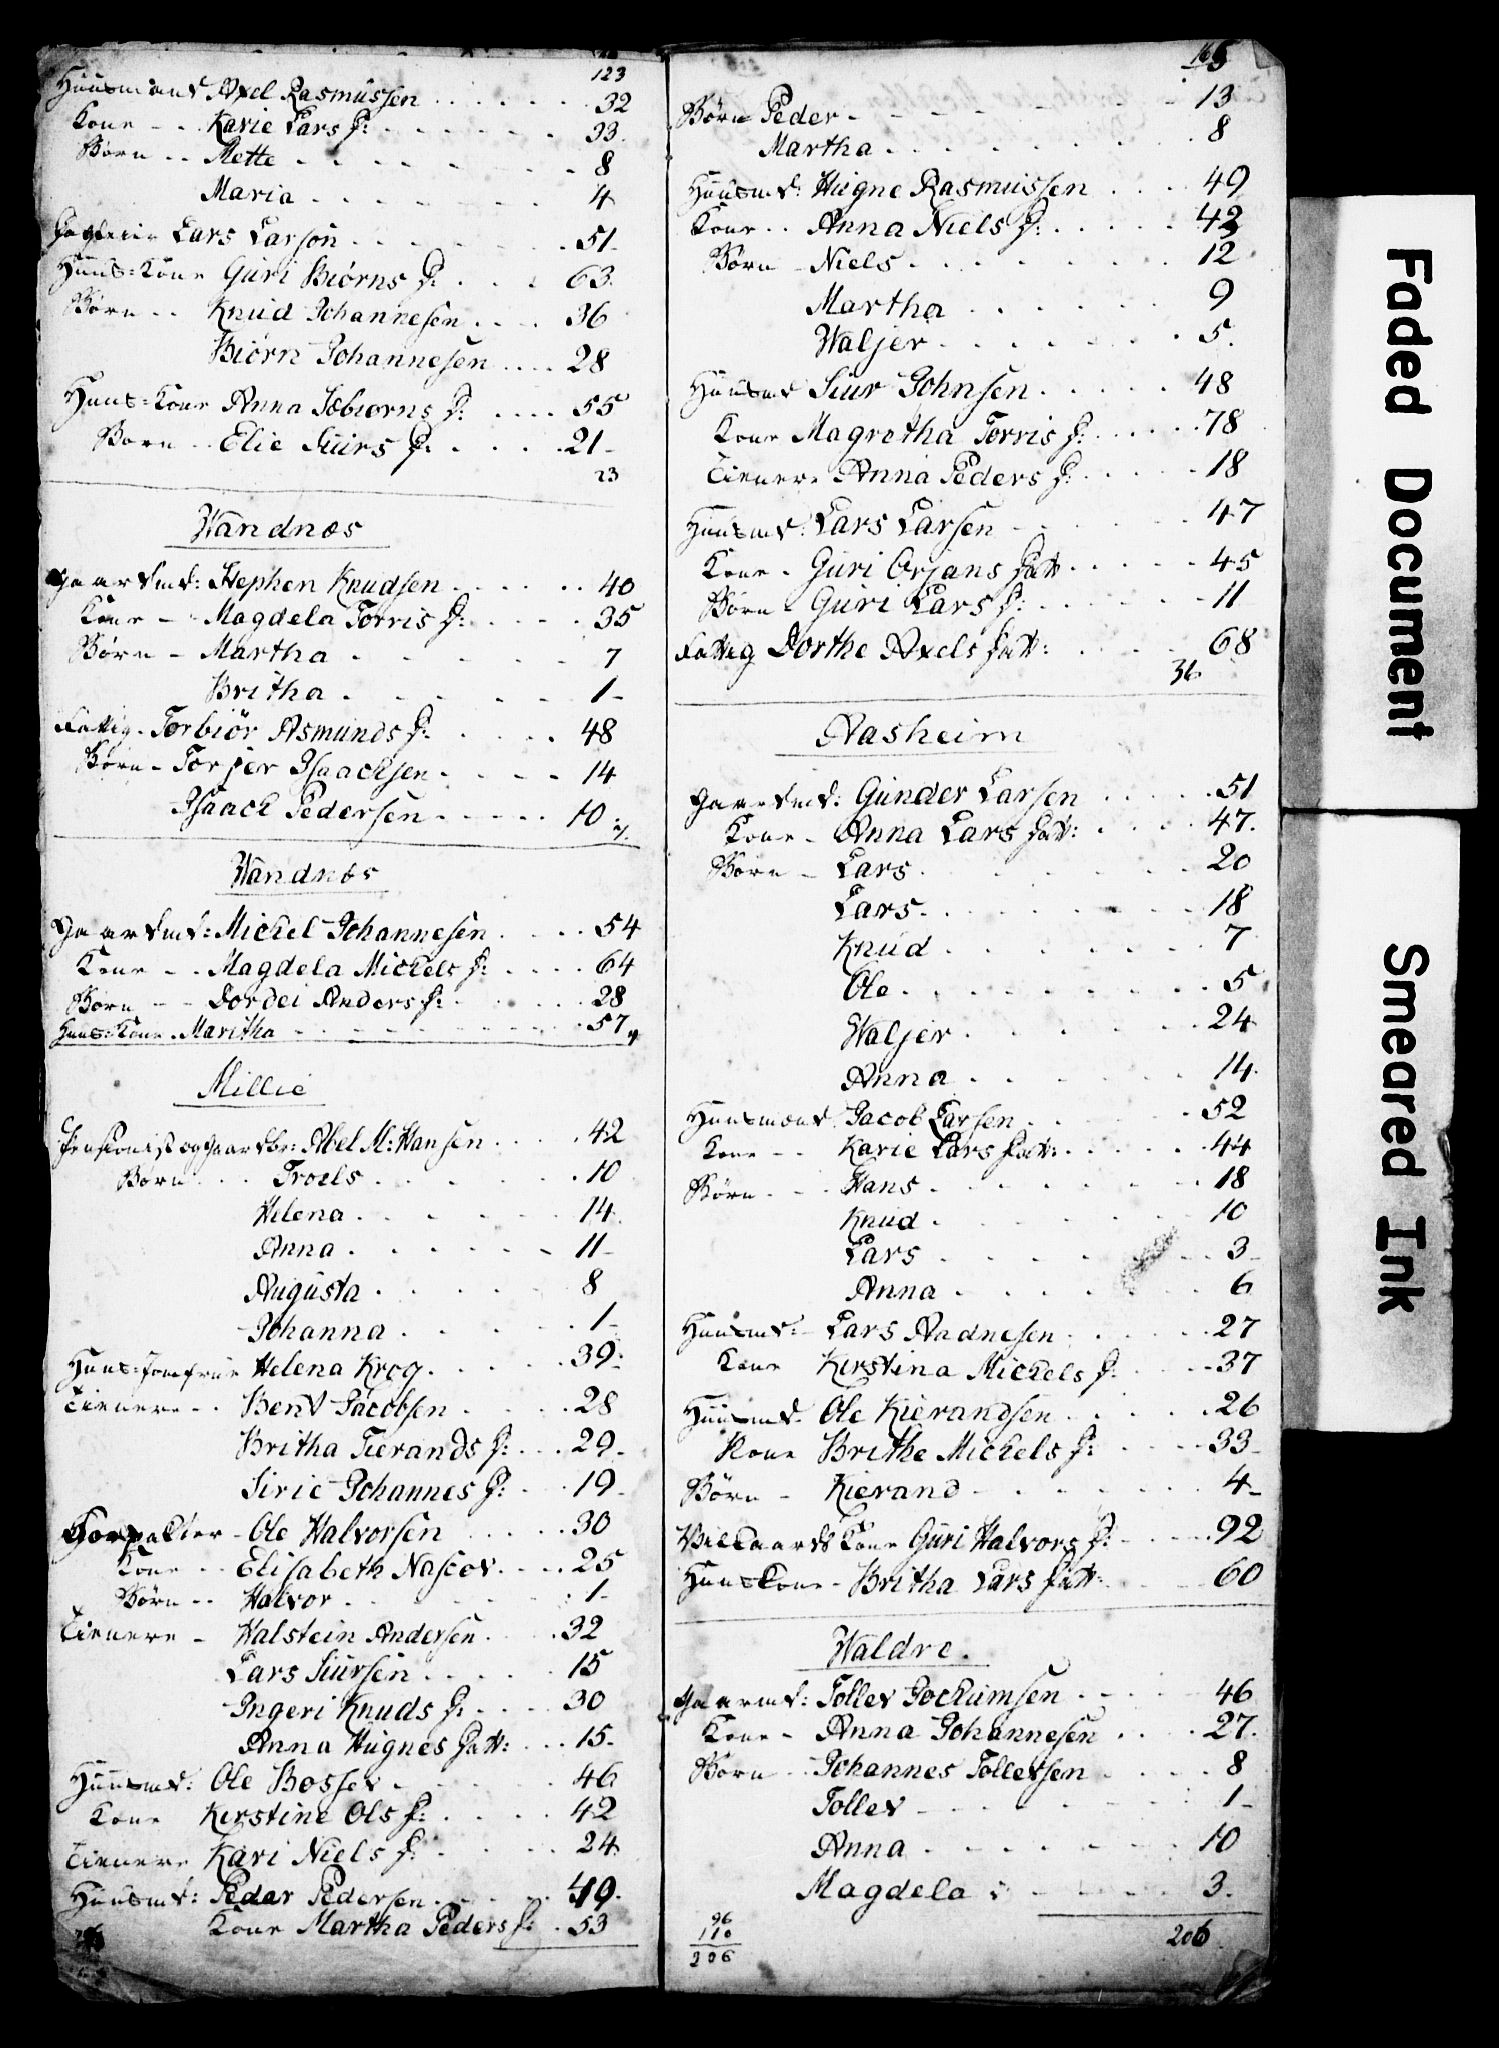 123
Huusmand Axel Rasmussen 32
Kone Karie Lars D: 33
Børn Mette 8
Maria 4
Lars Larson 51
Huus=Kone Guri Biørns D: 63
Børn Knud Johannesen 36
Biørn Johannesen 28
Huus=Kone Anna Isbiørns D: 55
Børn Elie Siurs D: 21
23
Wandnæs
Gaardmd: Stephen Knudsen 40
Kone Magdela Torris D: 35
Børn Martha 7
Britha 1
Fattig Torbiør Asmunds D: 48
Børn Torjer Isaachsen 14
Isaach Pedersen 10
7.
Wandnøs
Gaardmd: Michel Johannesen 54
Kone Magdela Michels D: 64
Børn Dordei Anders D: 28
Huus=Kone Maritha 57
4
Millie
Pensionist og Gaardbr: Abel M: Hansen 42
Børn Troels 10
Helena 14
Anna 11
Augusta 8
Johanna 1
Huus=Jomfrue Helena Krog 39
Tienere Bent Jacobsen 28
Britha Tierands D: 29
Sirie Johannes D: 19
Forpakter Ole Halvorsen 30
Kone Elisabeth Nascov 25
Børn Halvor 1
Tienere Halstein Andersen 32
Lars Siursen 15
Ingeri Knuds D: 30
Anna Hugnes Datt: 15
Huusmd: Ole Bossev 46
Kone Kirstine Ols D: 42
Tienere Kari Niels D: 24
Huusmd: Peder Pedersen 49
Kone Martha Peders D: 53
165
Børn Peder 13
Martha 8
Huusmd: Hugne Rasmussen 49
Kone Anna Niels D: 42
Børn Niels 12
Martha 9
Waljer 5
Huusmd Siur Johnsen 48
Kone Magretha Torris D: 78
Tienere Anna Peders D: 18
Huusmd: Lars Larsen 47
Kone Guri Orjans Datt 45
Børn Guri Lars D: 11
Fattig Dorthe Axels Datt: 68
36
Aasheim
Gaardmd: Gunder Larsen 51
Kone Anna Lars Datt: 47
Børn Lars 20
Lars 18
Knud 7
Ole 5
Waljer 24
Anna 14
Huusmand Jacob Larsen 52
Kone Karie Lars Datt: 44
Børn Hans 18
Knud 10
Lars 3
Anna 6
Huusmd: Lars Aadnesen 27
Kone Kirstina Michels D: 37
Huusmd. Ole Kierandsen 26
Kone Brithe Michels D: 33
Børn Kierand 4
Vilkaards Kone Guri Halvors D: 92
Huuskone Britha Lars Datt: 60
Waldre.
Gaarmd: Tollev Jochumsen 46
Kone Anna Johannesen 27
Børn Johannes Tollevsen 8
Tollev 1
Anna 10
Magdela 3
96
110
206
206
Faded Document
Smeared Ink